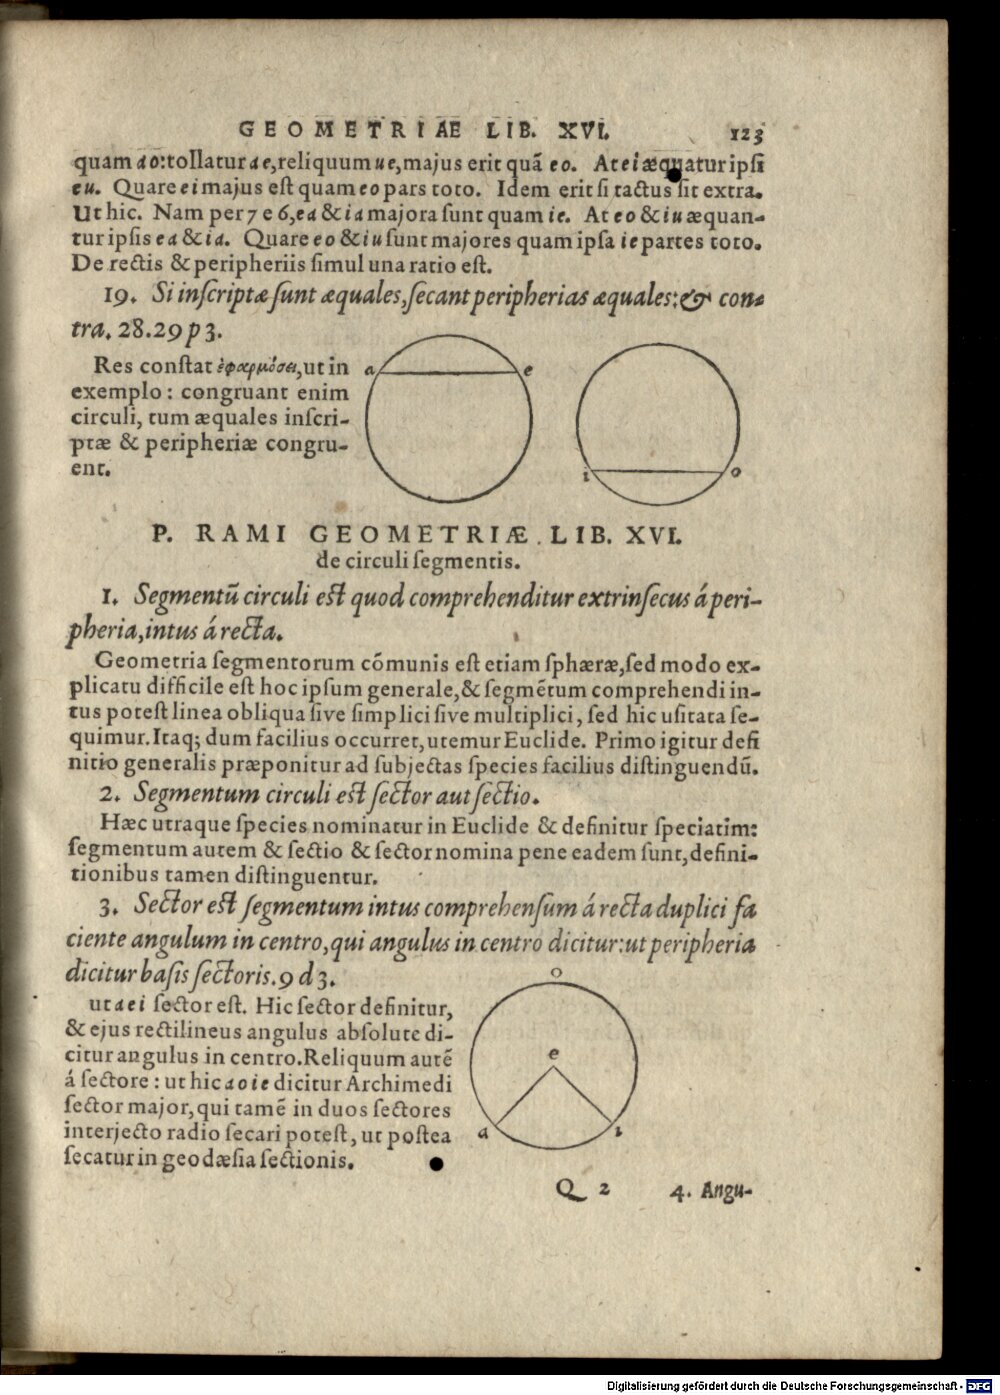 GEOMETRIAE LIB. XVI. 123
quam ao: tollatur ae, reliquum ue, majus erit quã eo. At ei æquatur ipsi
eu. Quare ei majus est quam eo pars toto. Idem erit si tactus sit extra.
Ut hic. Nam per 7 e 6, ea & ia majora sunt quam ie. At eo & iu æquan-
tur ipsis ea & ia. Quare eo & iu sunt majores quam ipsa ie partes toto.
De rectis & peripheriis simul una ratio est.
19. Si inscriptæ sunt æquales, secant peripherias æquales: & con-
tra. 28. 29 p 3.
Res constat ἐφαρμόσει, ut in
exemplo: congruant enim
circuli, tum æquales inscri-
ptæ & peripheriæ congru-
ent.
a e
i o
P. RAMI GEOMETRIÆ LIB. XVI.
de circuli segmentis.
1. Segmentũ circuli est quod comprehenditur extrinsecus á peri-
pheria, intus á recta.
Geometria segmentorum cõmunis est etiam sphæræ, sed modo ex-
plicatu difficile est hoc ipsum generale, & segmẽtum comprehendi in-
tus potest linea obliqua sive simplici sive multiplici, sed hic usitata se-
quimur. Itaq; dum facilius occurret, utemur Euclide. Primo igitur defi
nitio generalis præponitur ad subjectas species facilius distinguendũ.
2. Segmentum circuli est sector aut sectio.
Hæc utraque species nominatur in Euclide & definitur speciatim:
segmentum autem & sectio & sector nomina pene eadem sunt, defini-
tionibus tamen distinguentur.
3. Sector est segmentum intus comprehensum á recta duplici fa
ciente angulum in centro, qui angulus in centro dicitur: ut peripheria
dicitur basis sectoris. 9 d 3.
ut aei sector est. Hic sector definitur,
& ejus rectilineus angulus absolute di-
citur angulus in centro. Reliquum autẽ
á sectore: ut hic aoie dicitur Archimedi
sector major, qui tamẽ in duos sectores
interjecto radio secari potest, ut postea
secatur in geodæsia sectionis.
o
e
a i
Q 2 4. Angu-
Digitalisierung gefördert durch die Deutsche Forschungsgemeinschaft - DFG